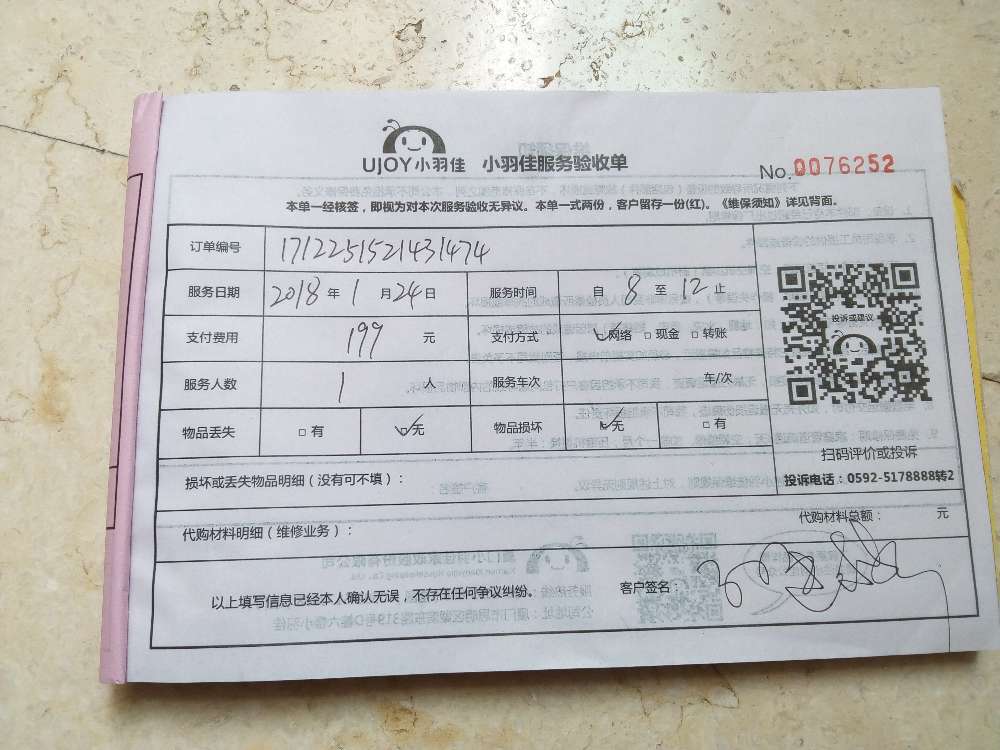 UJOY小羽佳 小羽佳服务验收单
No.0076252
本单一经核签，即视为对本次服务验收无异议。本单一式两份，客户留存一份(红)。《维保须知》详见背面。
订单编号 1712251521431474
服务日期 2018年1月24日 服务时间 自8至12止
支付费用 199元 支付方式 ☑网络 □现金 □转账
服务人数 1人 服务车次 车/次
物品丢失 □有 ☑无 物品损坏 ☑无 □有
投诉或建议
扫码评价或投诉
投诉电话：0592-5178888转2
损坏或丢失物品明细（没有可不填）：
代购材料明细（维修业务）： 代购材料总额： 元
以上填写信息已经本人确认无误，不存在任何争议纠纷。 客户签名：